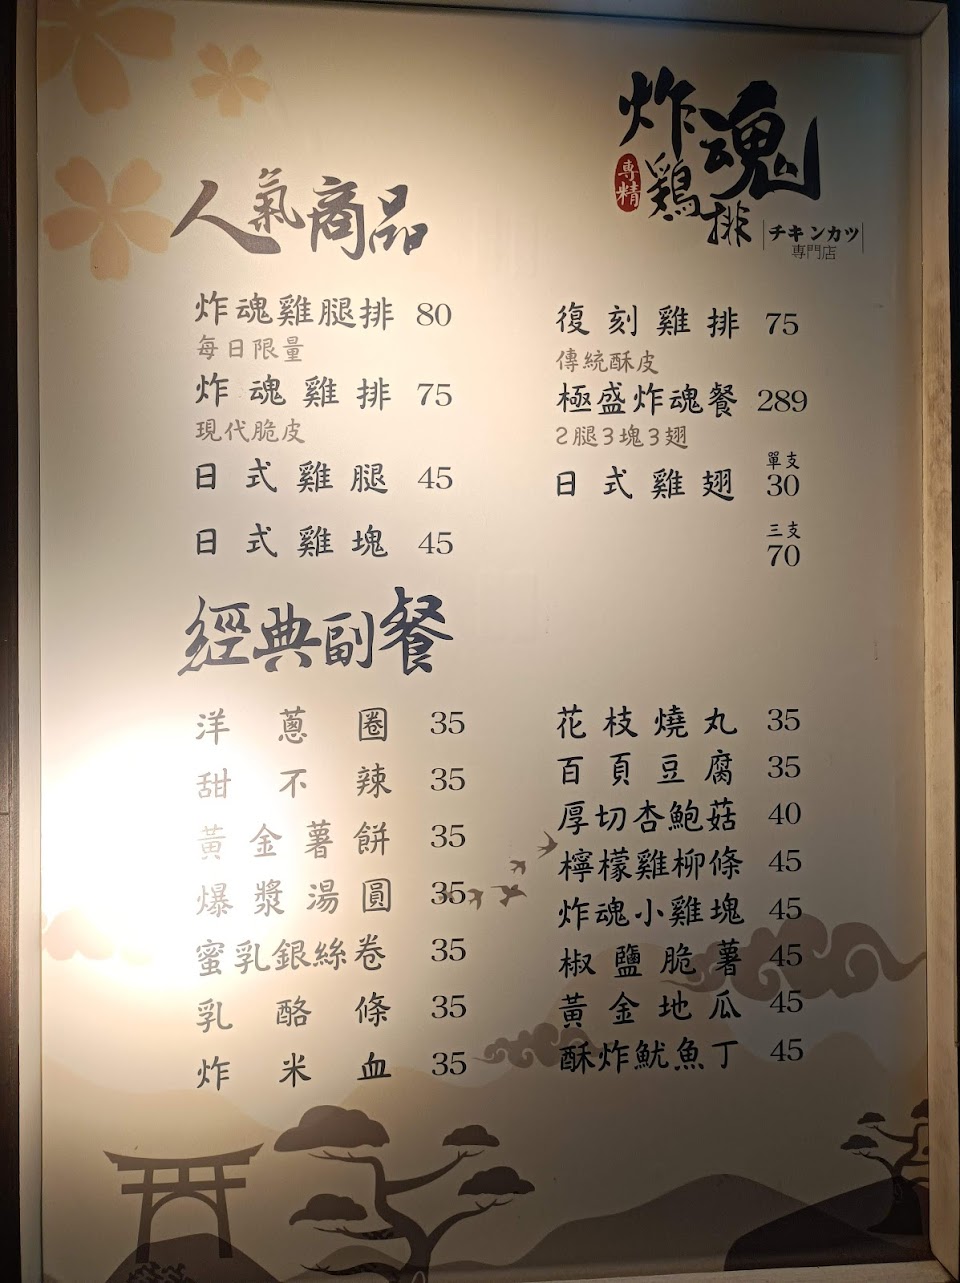 炸魂
專精
鷄排
チキンカツ
専門店
人氣商品
炸魂雞腿排 80
每日限量
炸魂雞排 75
現代脆皮
日式雞腿 45
日式雞塊 45
復刻雞排 75
傳統酥皮
極盛炸魂餐 289
2腿3塊3翅
單支
日式雞翅 30
三支
70
經典副餐
洋蔥圈 35
甜不辣 35
黃金薯餅 35
爆漿湯圓 35
蜜乳銀絲卷 35
乳酪條 35
炸米血 35
花枝燒丸 35
百頁豆腐 35
厚切杏鮑菇 40
檸檬雞柳條 45
炸魂小雞塊 45
椒鹽脆薯 45
黃金地瓜 45
酥炸魷魚丁 45